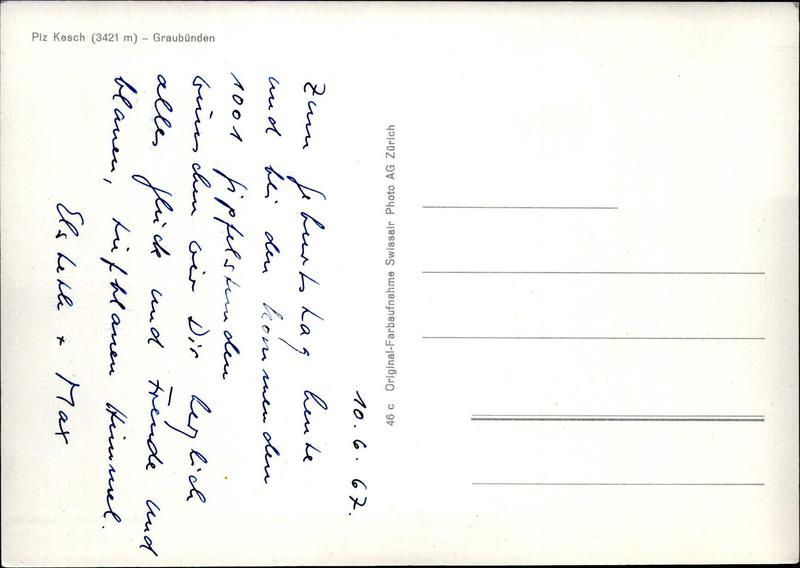 Piz Kesch (3421 m) – Graubünden
10. 6. 67.
Zum Geburtstag heute
und bei den kommenden
1001 Gipfelstunden
wünschen wir Dir herzlich
alles Glück und Freude und
blauen, tiefblauen Himmel.
Elsbeth + Max
46 c Original-Farbaufnahme Swissair Photo AG Zürich